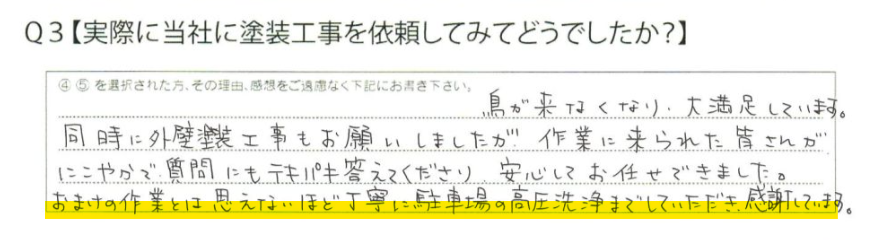 Q3【実際に当社に塗装工事を依頼してみてどうでしたか?】
④ ⑤ を選択された方、その理由、感想をご遠慮なく下記にお書き下さい。
鳥が来なくなり、大満足しています。
同時に外壁塗装工事もお願いしましたが、作業に来られた皆さんが
にこやかで質問にもテキパキ答えてくださり、安心してお任せできました。
おまけの作業とは思えないほど丁寧に駐車場の高圧洗浄までしていただき、感謝しています。